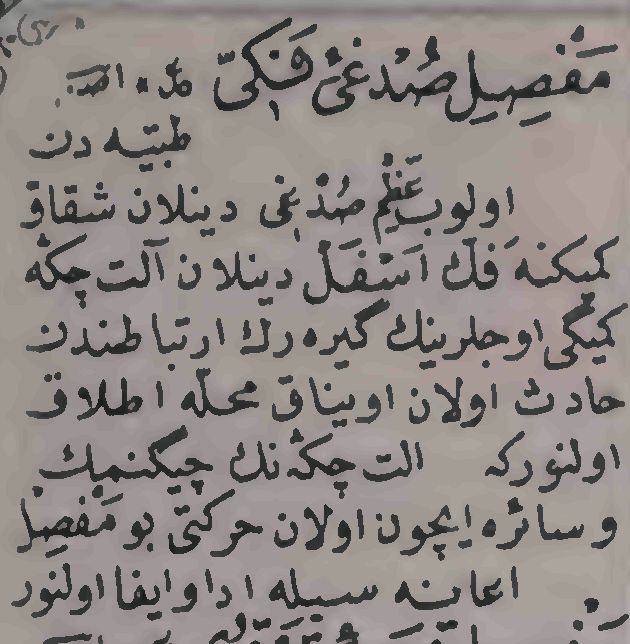 مَفْصِلِ صُدْغِئ فَکِّی مذ٠ اصـ
طبیه دن
اولوب عَظْمِ صُدْغِی دینلان شقاق
کمیکنه فَکّ اَسْفَلْ دینلان آلت چکه
کمیکی اوجلرینك کیره رك ارتباطندن
حادث اولان اویناق محلّه اطلاق
اولنورکه الت چکه نك چیکنمك
و سائره ایچون اولان حرکتی بو مَفْصِل
اعانه سیله ادا و ایفا اولنور